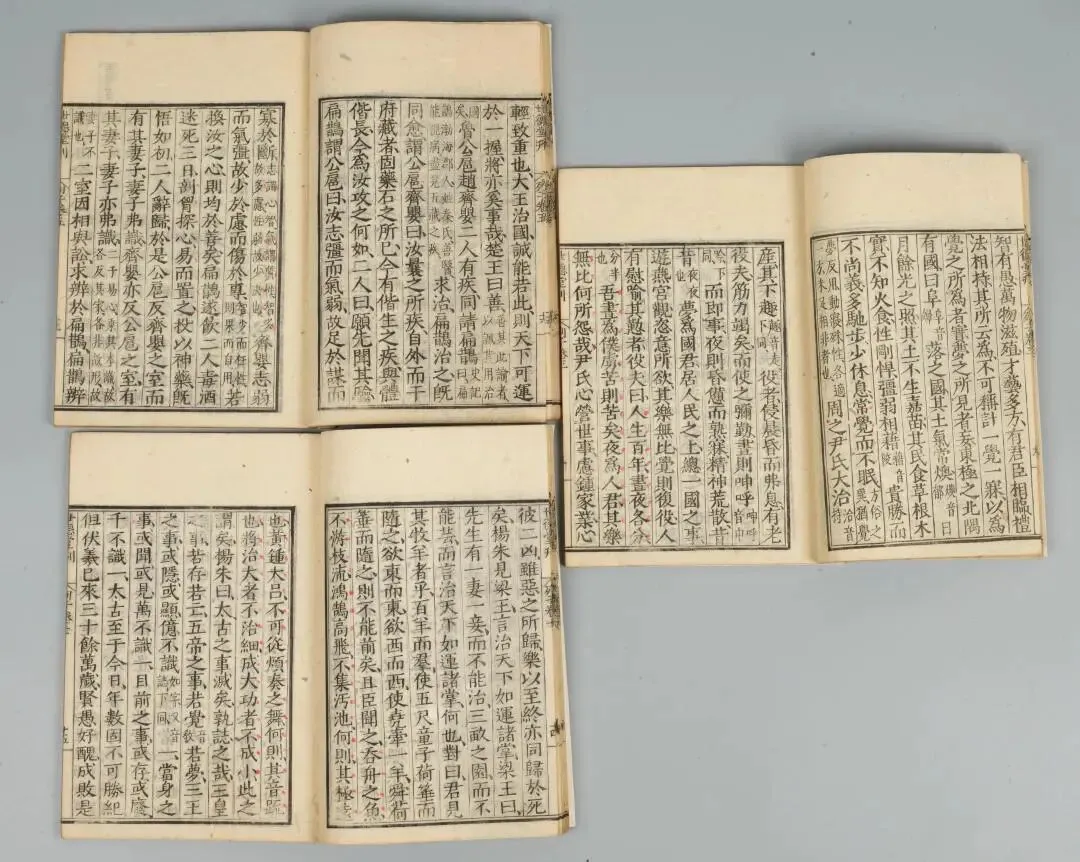 輕致重也大王治國誠能若此則天下可運
於一握將亦奚事哉楚王曰善
矣魯公扈趙齊嬰二人有疾同請扁鵲史記曰扁
鵲渤海郡人姓秦氏善醫能視病盡見五藏之疾求治扁鵲治之既
同愈謂公扈齊嬰曰汝曩之所疾自外而干
府藏者固藥石之所已今有偕生之疾與體
偕長今為汝攻之何如二人曰願先聞其驗
扁鵲謂公扈曰汝志彊而氣弱故足於謀而
寡於斷志謂心智氣謂質性智多故多慮性弱故少決也齊嬰志弱
而氣彊故少於慮而傷於專智少而任性則果而自用若
換汝之心則均於善矣扁鵲遂飲二人毒酒
迷死三日剖胷探心易而置之投以神藥既
悟如初二人辭歸於是公扈反齊嬰之室而
有其妻子妻子弗識齊嬰亦反公扈之室有
其妻子妻子亦弗識二子易心乘其本識故各反其家各非故形故
妻子不識也二室因相與訟求辨於扁鵲扁鵲辨
世德堂刊
知有愚萬物滋殖才藝多方有君臣相臨禮
法相持其所云為不可稱計一覺一寐以為
覺之所為者實夢之所見者妄東極之北隅
有國曰阜落之國其土氣常燠日
月餘光之照其土不生嘉苗其民食草根木
實不知火食性剛悍彊弱相藉貴勝而
不尚義多馳步少休息常覺而不眠方俗之異猶覺
夢反用動寢殊性各適一方未足相非者也周之尹氏大治
產其下趣役者侵晨昏而弗息有老
役夫筋力竭矣而使之彌勤晝則呻呼
下同而即事夜則昏憊而熟寐精神荒散昔
昔夜夜也夢為國君居人民之上總一國之事
遊燕宮觀恣意所欲其樂無比覺則復役人
有慰喻其懃者役夫曰人生百年晝夜各分
分半也吾晝為僕虜苦則苦矣夜為人君其樂
無比何所怨哉尹氏心營世事慮鍾家業心
世德堂刊
彼二凶雖惡之所歸樂以至終亦同歸於死
矣楊朱見梁王言治天下如運諸掌梁王曰
先生有一妻一妾而不能治三畝之園而不
能芸而言治天下如運諸掌何也對曰君見
其牧羊者乎百羊而羣使五尺童子荷箠而
隨之欲東而東欲西而西使堯牽一羊舜荷
箠而隨之則不能前矣且臣聞之吞舟之魚
不游枝流鴻鵠高飛不集汚池何則其極遠
也黃鍾大呂不可從煩奏之舞何則其音疏
也將治大者不治細成大功者不成小此之
謂矣楊朱曰太古之事滅矣孰誌之哉三皇
之事若存若亡五帝之事若覺若夢三王
之事或隱或顯億不識一當身之
事或聞或見萬不識一目前之事或存或廢
千不識一太古至于今日年數固不可勝紀
但伏羲已來三十餘萬歲賢愚好醜成敗是
世德堂刊